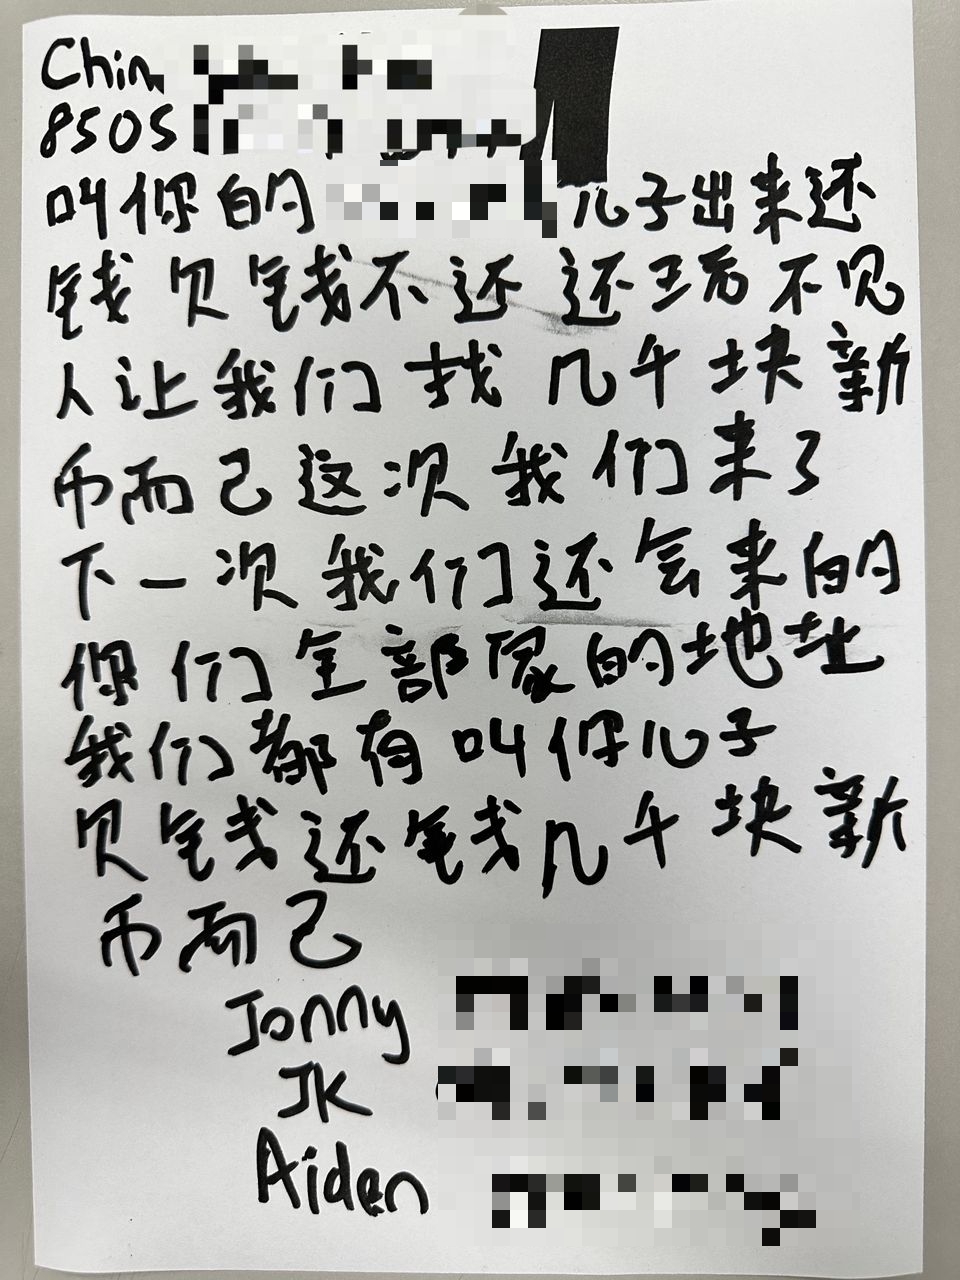 Chin
8505
叫你的 儿子出来还
钱欠钱不还还玩不见
人让我们找几千块新
币而己这次我们来了
下一次我们还会来的
你们全部家的地址
我们都有叫你儿子
欠钱还钱几千块新
币而己
Jonny
JK
Aiden